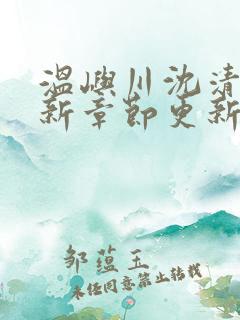 温屿川沈清
新章节更新
邹蕴玉
未经同意禁止转载